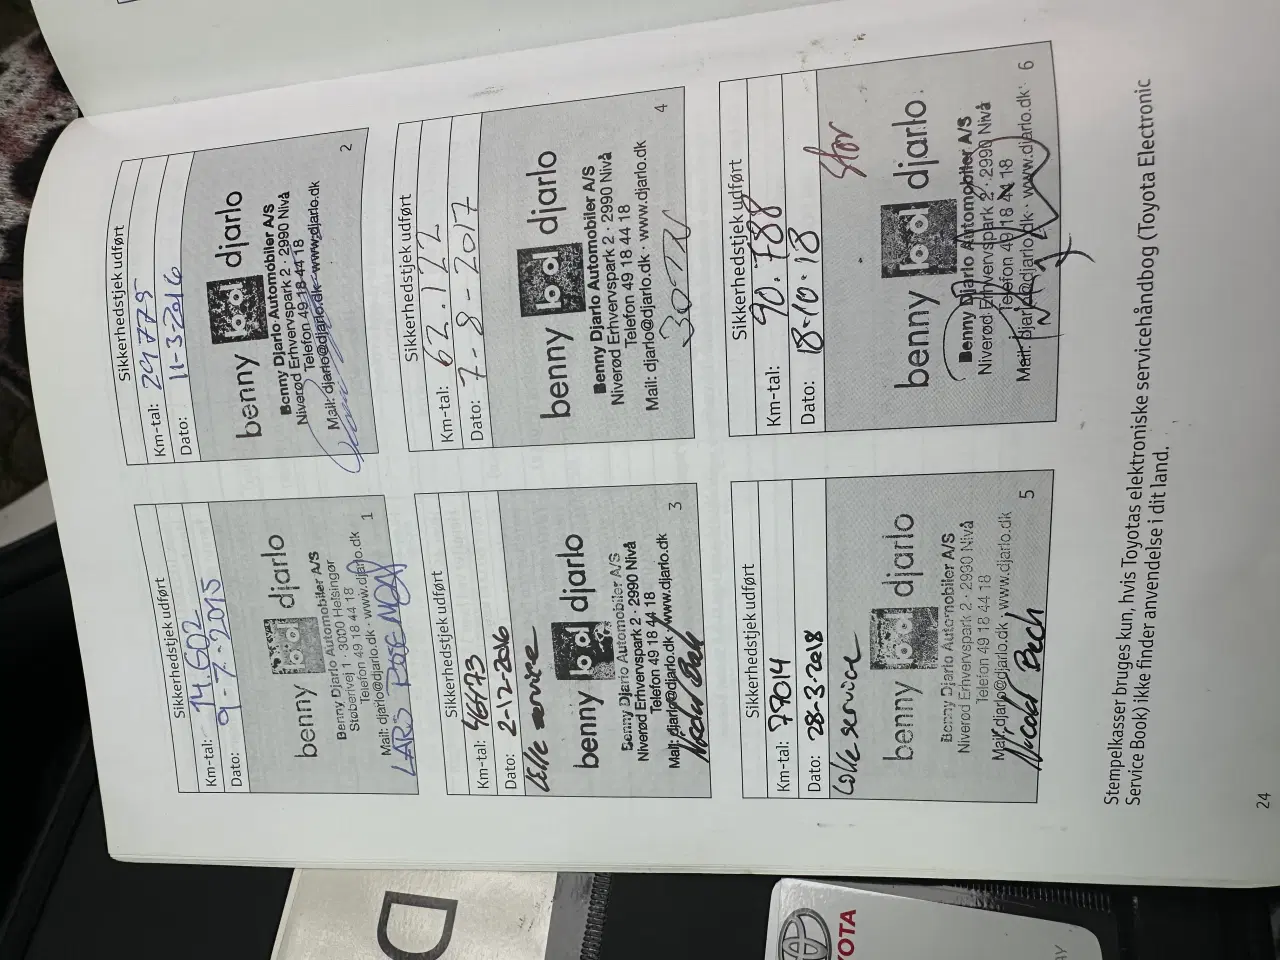 Sikkerhedstjek udført
Km-tal: 14.602
Dato: 9-7-2015
benny bd djarlo
Benny Djarlo Automobiler A/S
Støberivej 1 · 3000 Helsingør
Telefon 49 18 44 18
Mail: djarlo@djarlo.dk · www.djarlo.dk
LARS
1
Sikkerhedstjek udført
Km-tal: 29775
Dato: 11-3-2016
benny bd djarlo
Benny Djarlo Automobiler A/S
Niverød Erhvervspark 2 · 2990 Nivå
Telefon 49 18 44 18
Mail: djarlo@djarlo.dk · www.djarlo.dk
2
Sikkerhedstjek udført
Km-tal: 46473
Dato: 2-12-2016
Lille service
benny bd djarlo
Benny Djarlo Automobiler A/S
Niverød Erhvervspark 2 · 2990 Nivå
Telefon 49 18 44 18
Mail: djarlo@djarlo.dk · www.djarlo.dk
3
Sikkerhedstjek udført
Km-tal: 62.122
Dato: 7-8-2017
benny bd djarlo
Benny Djarlo Automobiler A/S
Niverød Erhvervspark 2 · 2990 Nivå
Telefon 49 18 44 18
Mail: djarlo@djarlo.dk · www.djarlo.dk
4
Sikkerhedstjek udført
Km-tal: 77014
Dato: 28-3-2018
Lille service
benny bd djarlo
Benny Djarlo Automobiler A/S
Niverød Erhvervspark 2 · 2990 Nivå
Telefon 49 18 44 18
Mail: djarlo@djarlo.dk · www.djarlo.dk
Bech
5
Sikkerhedstjek udført
Km-tal: 90.788
Dato: 18-10-18
Stor
benny bd djarlo
Benny Djarlo Automobiler A/S
Niverød Erhvervspark 2 · 2990 Nivå
Telefon 49 18 44 18
Mail: djarlo@djarlo.dk · www.djarlo.dk
6
Stempelkasser bruges kun, hvis Toyotas elektroniske servicehåndbog (Toyota Electronic
Service Book) ikke finder anvendelse i dit land.
24
D